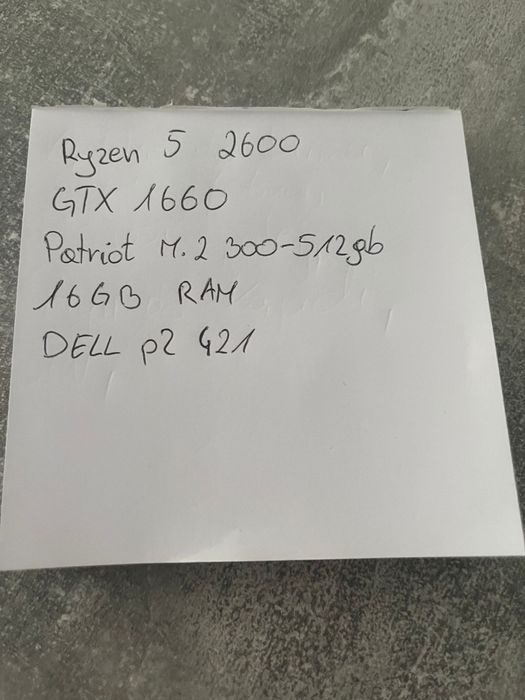 Ryzen 5 2600
GTX 1660
Patriot M.2 300-512gb
16GB RAM
DELL p2 421